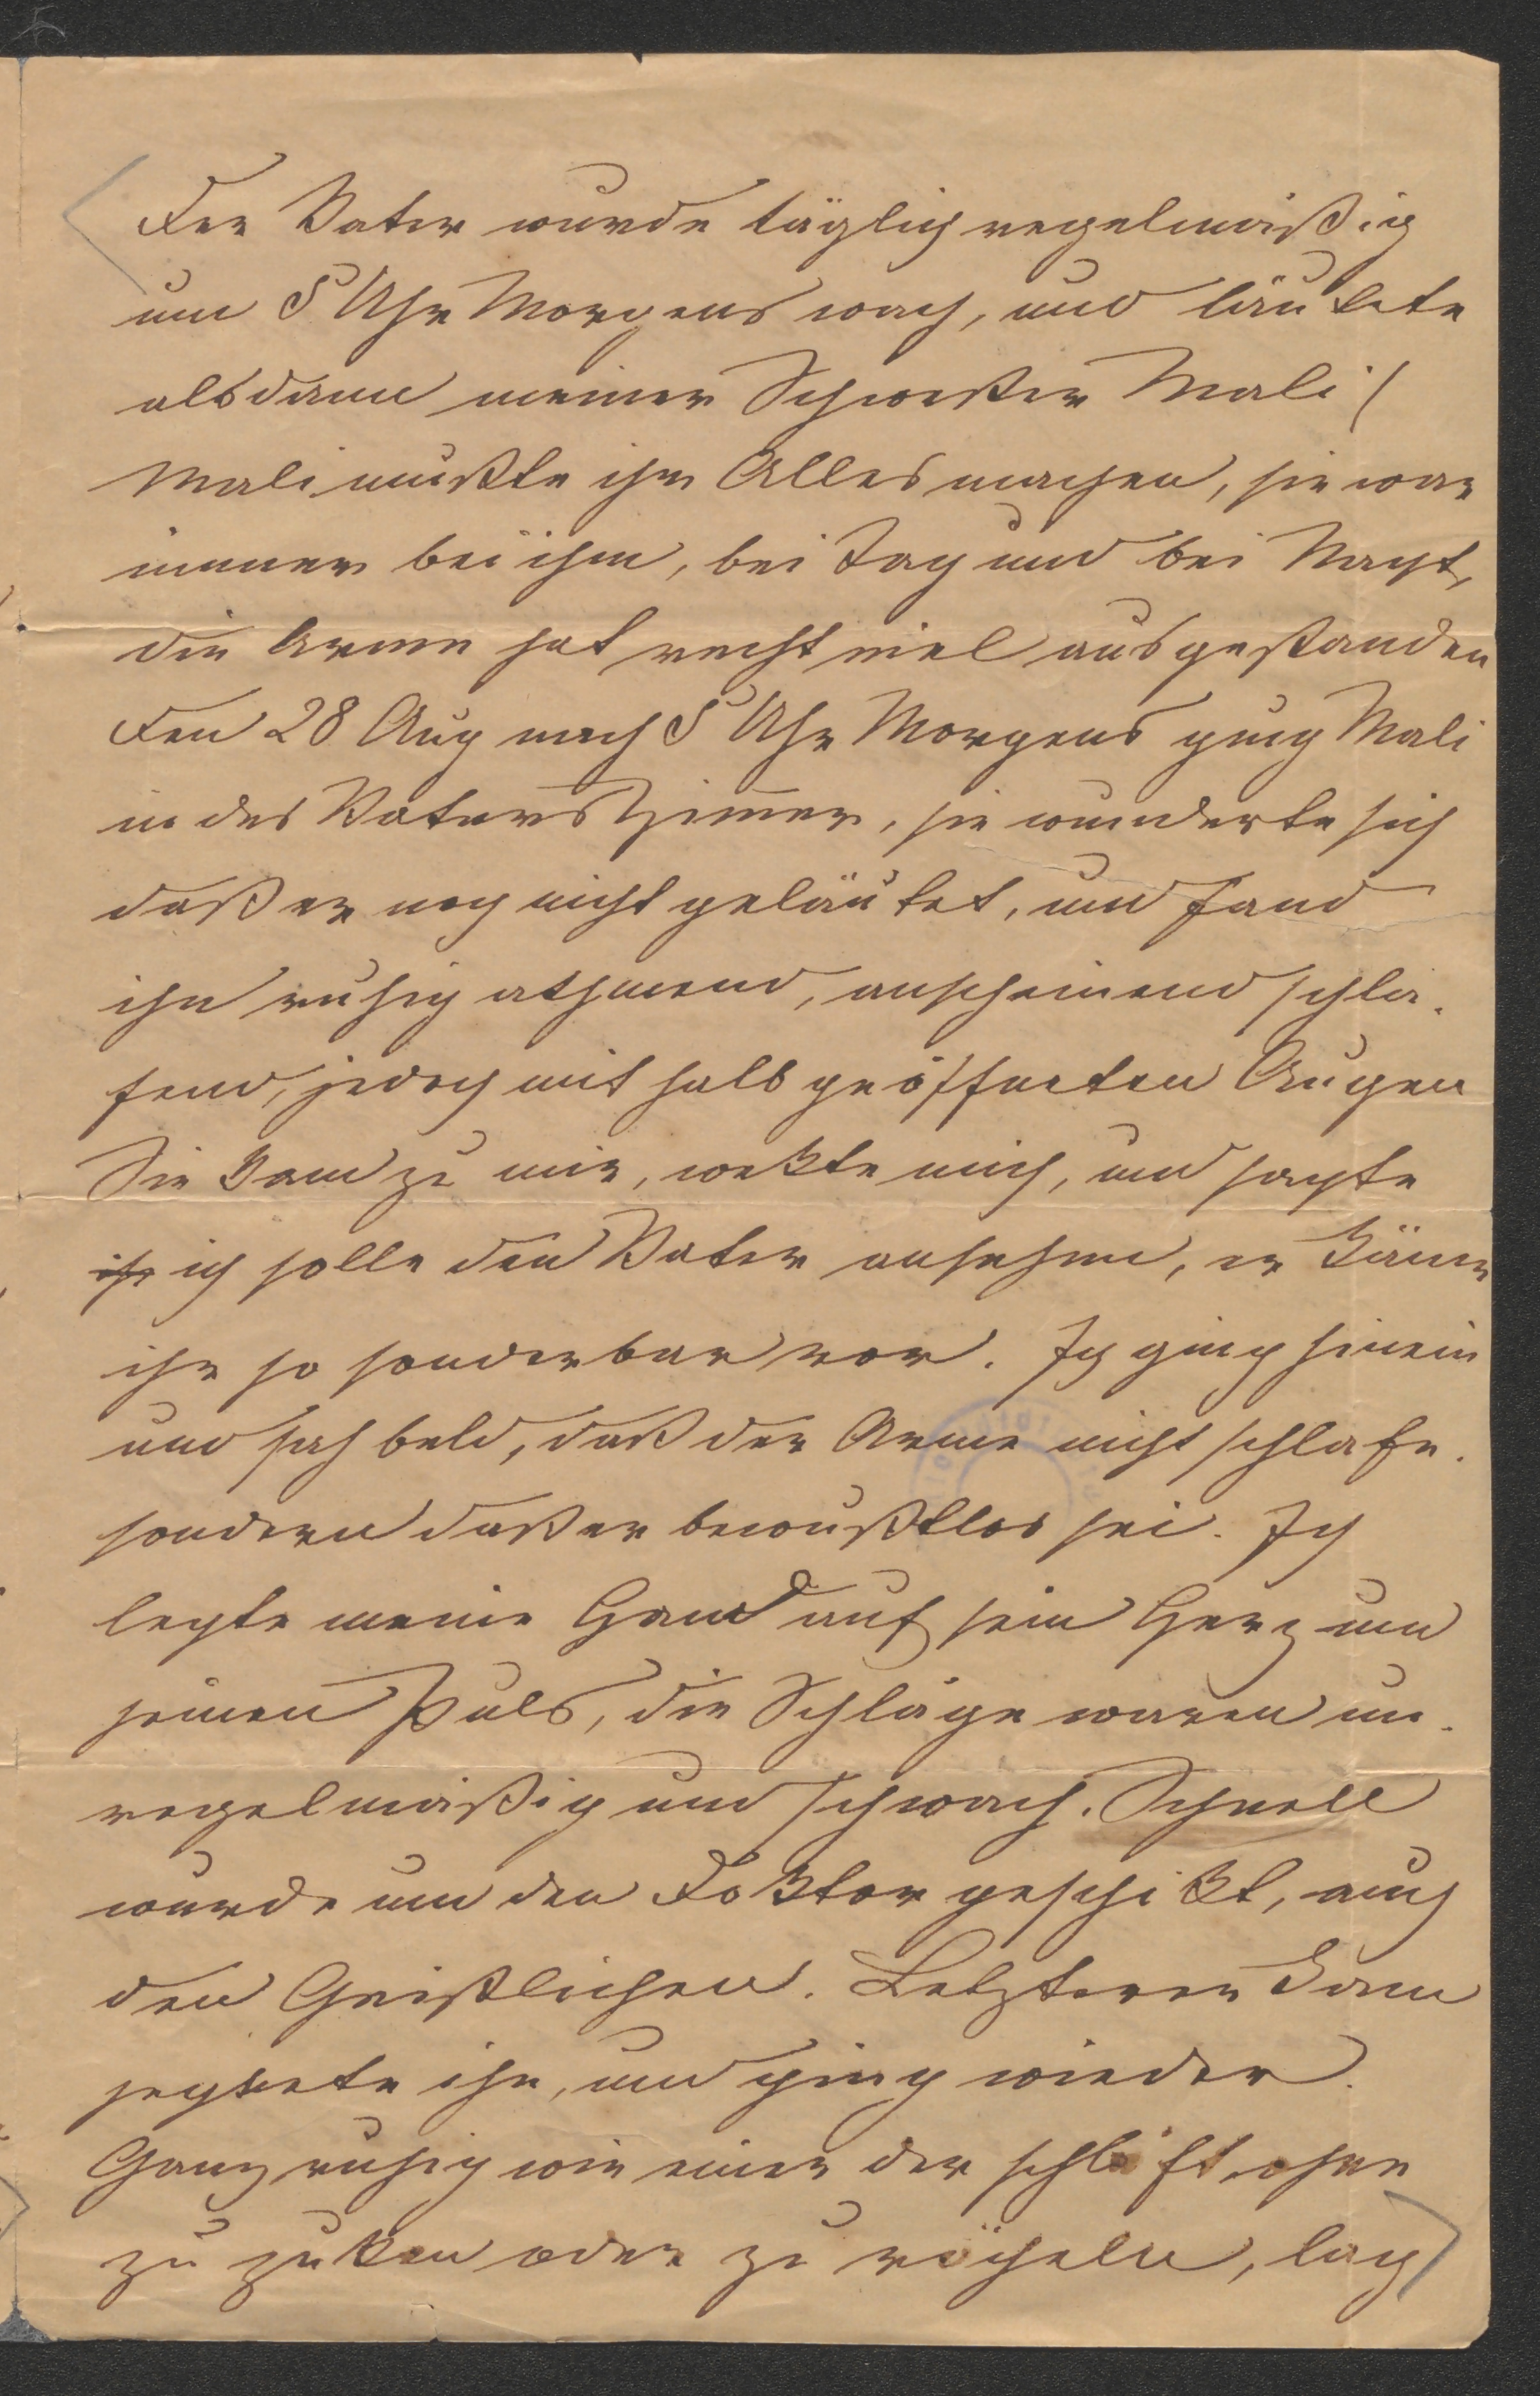 Der Vater wurde täglich regelmäßig
um 5 Uhr Morgens wach, und läutete
alsdann meiner Schwester Mali (
Mali mußte ihm Alles machen, sie war
immer bei ihm, bei Tag und bei Nacht,
die Arme hat recht viel ausgestanden
Den 28 Aug nach 5 Uhr Morgens ging Mali
in des Vaters Zimmer, sie wunderte sich
daß er noch nicht geläutet, und fand
ihn ruhig athmend, anscheinend schla-
fend, jedoch mit halb geöffneten Augen
Sie kam zu mir, wekte mich, und sagte
ich solle den Vater ansehen, er käme
ihr so sonderbar vor. Ich ging hinein
und sah bald, daß der Arme nicht schlafe.
sondern daß er bewußtlos sei. Ich
legte meine Hand auf sein Herz und
seinen Puls, die Schläge waren un-
regelmäßig und schwach. Schnell
wurde um den Doktor geschikt, auch
den Geistlichen. Letzterer kam
segnete ihn, und ging wieder.
Ganz ruhig wie einer der schläft, ohne
zu zuken oder zu röcheln, lag